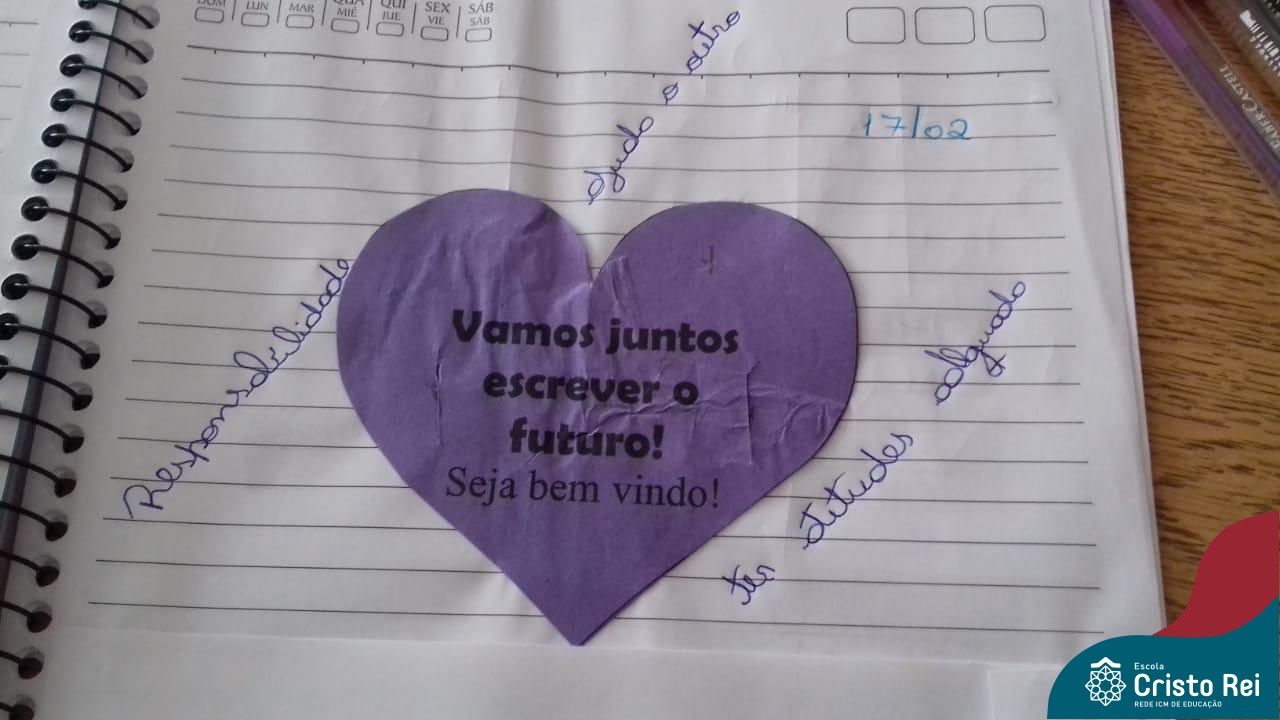 DOM LUN MAR QUA QUI SEX SÁB
MIÉ JUE VIE SÁB
ajuda o outro
17/02
Responsabilidade
Vamos juntos
escrever o
futuro!
Seja bem vindo!
ter atitudes
FABER CASTELL
Escola
Cristo Rei
REDE ICM DE EDUCAÇÃO